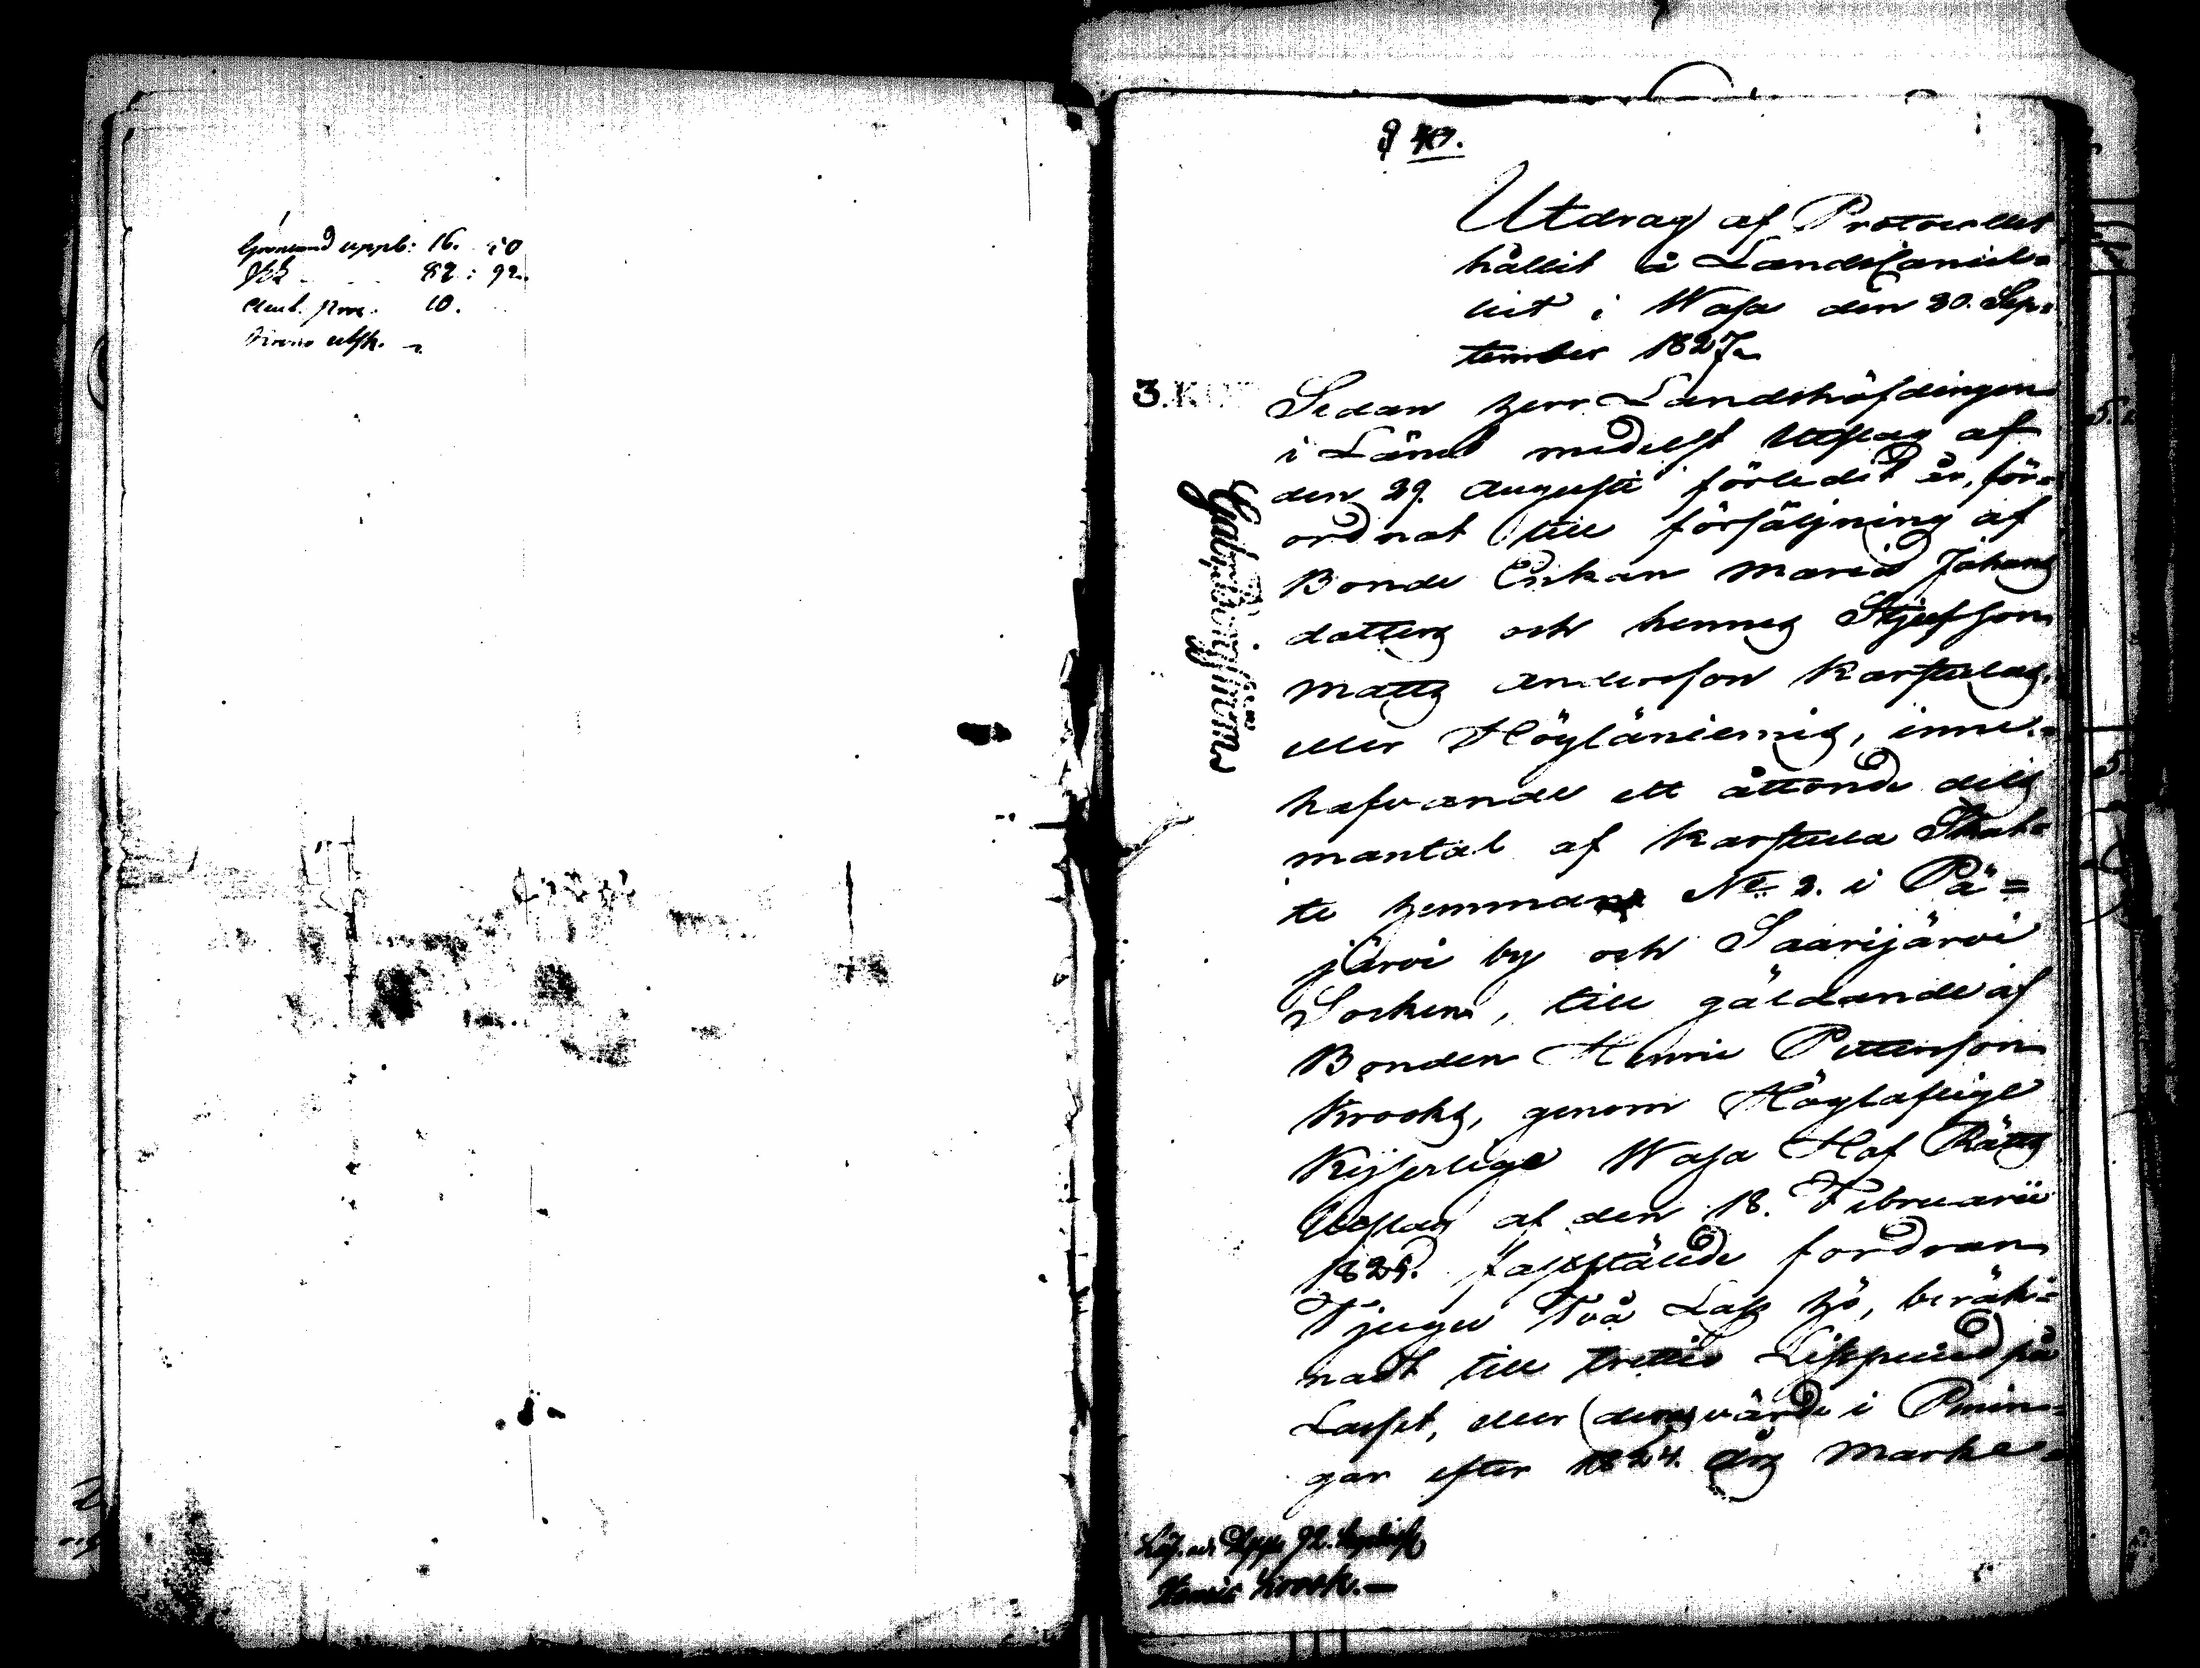 uppb: 16. 50
82: 92.
10.
§ 40.
Utdrag af Protocollet
hållit å Landscancel-
liet i Wasa den 20. Sep-
tember 1827.
3. KOP
Sedan herr Landshöfdingen
i Länet medelst Utslag af
den 29. Augusti förledit år, för-
ordnat till försäljning af
Bonde Enkan Maria Johans
dotters och hennes Styfson
Matts Andersson Karstulas,
eller Höyläniemis, inne-
hafvande ett åttonde dels
mantal af Karstula Skat-
te hemman No 2. i Pä-
järvi by och Saarijärvi
Socken, till gäldande af
Bonden Henric Pettersson
Krooks, genom Högloflige
Kejserlige Wasa Hof Rätts
Utslag af den 18. Februarii
1825. fastställde fordran
Tjugu Två Lass hö, beräk-
nadt till trettio Lispund på
Lasset, eller dess värde i Pennin-
gar efter 1824. års Marke-
92.
Henric Krook.